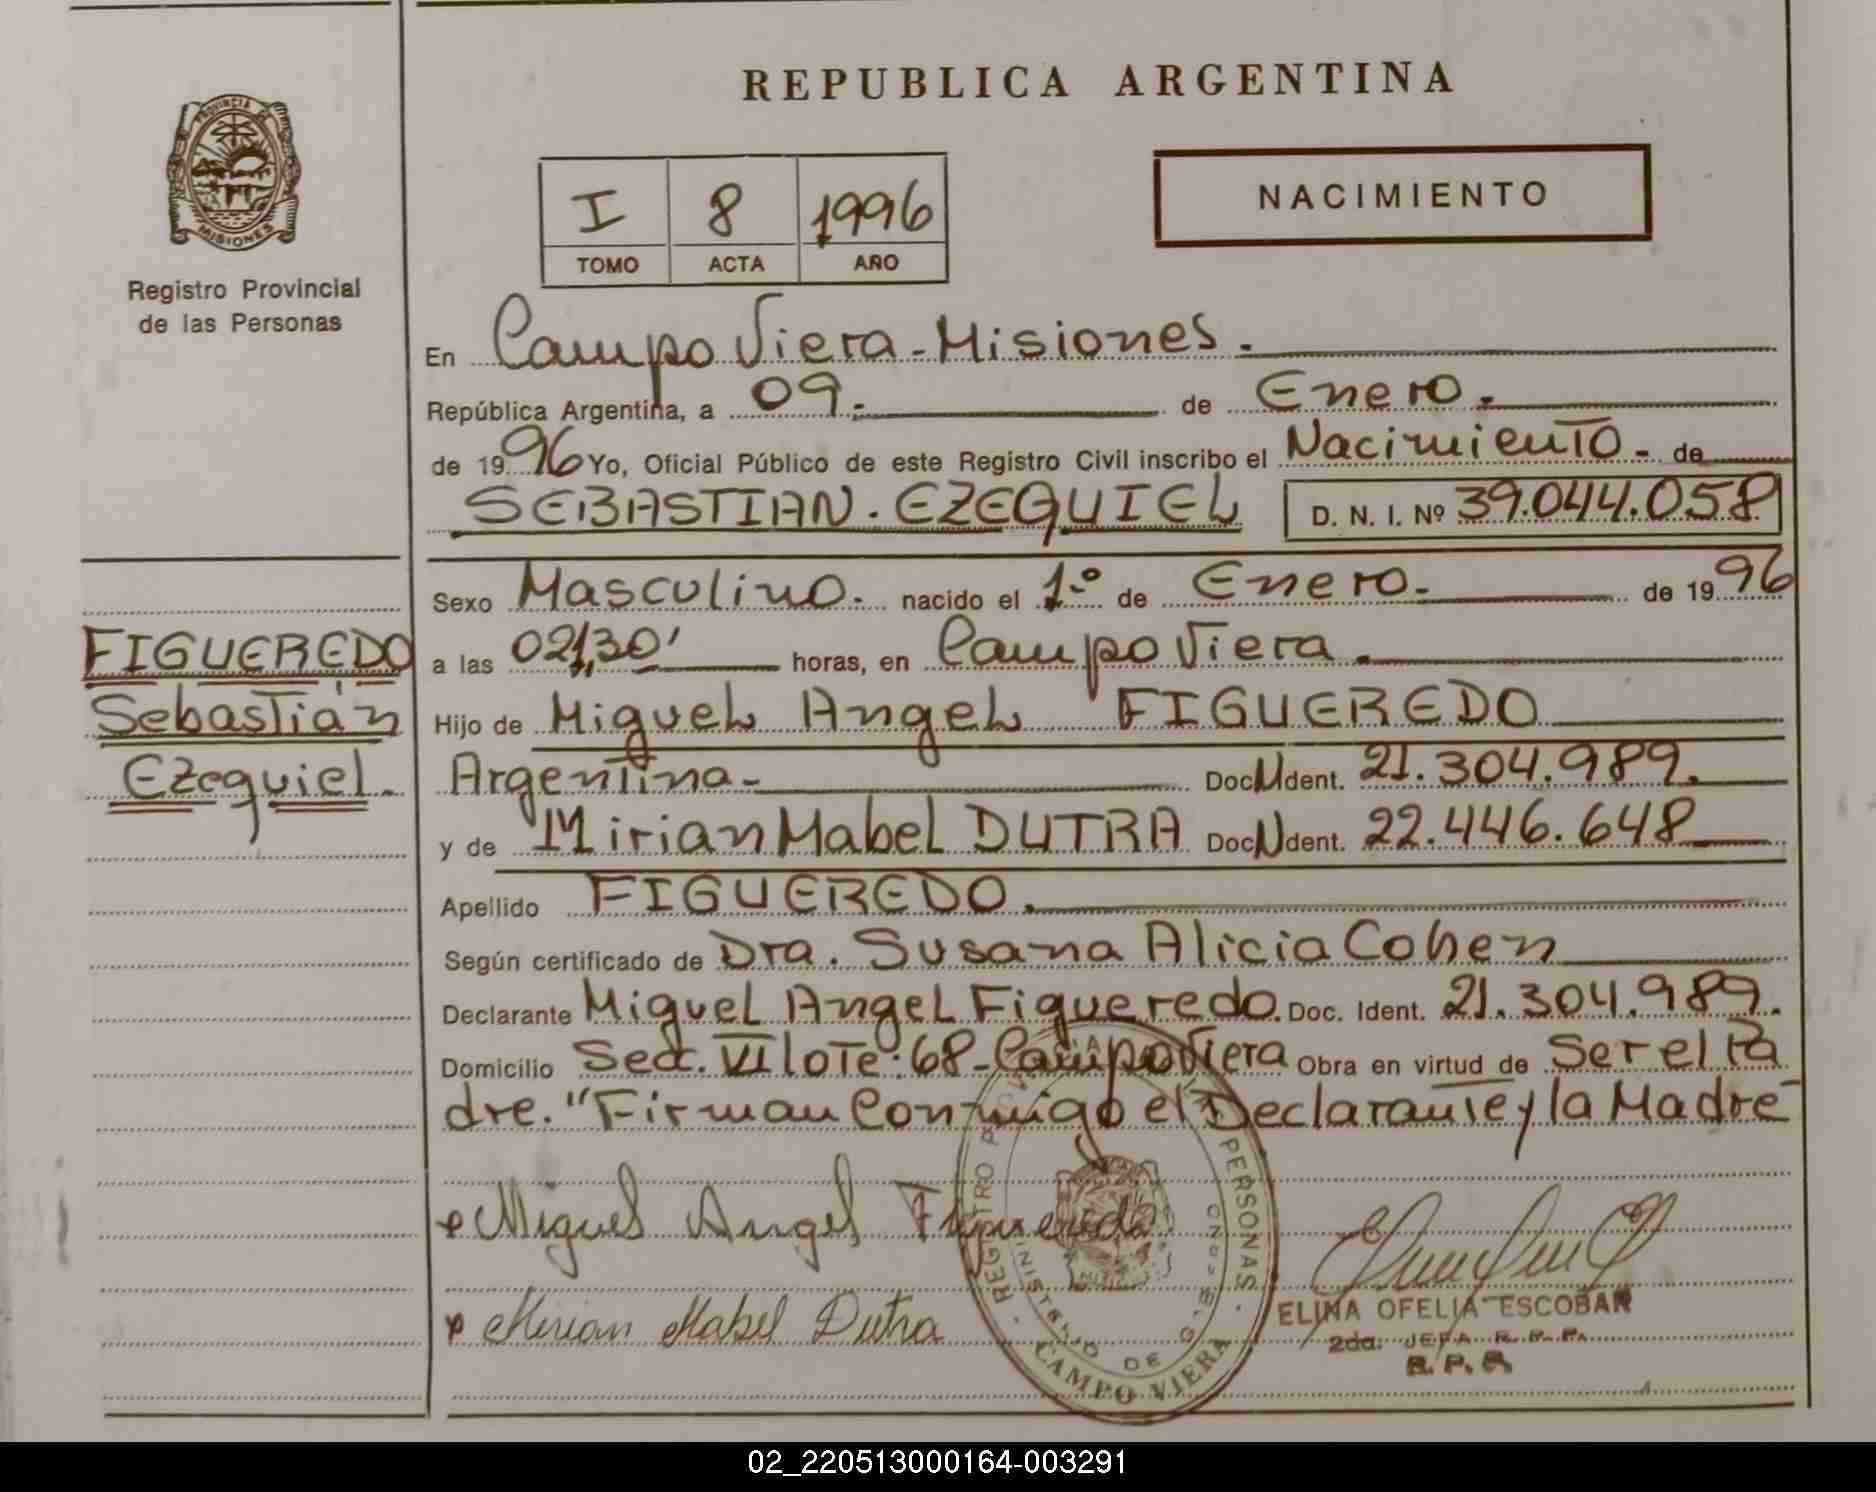 REPUBLICA ARGENTINA
PROVINCIA
MISIONES
Registro Provincial
de las Personas
I 8 1996
TOMO ACTA AÑO
NACIMIENTO
En Campo Viera - Misiones.
República Argentina, a 09.- de Enero.
de 1996 Yo, Oficial Público de este Registro Civil inscribo el Nacimiento - de
SEBASTIAN. EZEQUIEL D. N. I. Nº 39.044.058
Sexo Masculino. nacido el 1º de Enero. de 1996
a las 02,30' horas, en Campo Viera.
Hijo de Miguel Angel FIGUEREDO
Argentina - Doc. Ident. 21.304.989.
y de Mirian Mabel DUTRA Doc. Ident. 22.446.648
Apellido FIGUEREDO.
Según certificado de Dra. Susana Alicia Cohen
Declarante Miguel Angel Figueredo. Doc. Ident. 21.304.989.
Domicilio Secc. VI lote: 68 - Campo Viera Obra en virtud de Ser el Pa
dre. "Firman Conmigo el Declarante y la Madre
FIGUEREDO
Sebastián
Ezequiel.
Miguel Angel Figueredo
Mirian Mabel Dutra
PERSONAS
MINISTERIO DE GOBIERNO
CAMPO VIERA
ELINA OFELIA ESCOBAR
2da. JEFA R. P. P.
R. P. P.
02_220513000164-003291